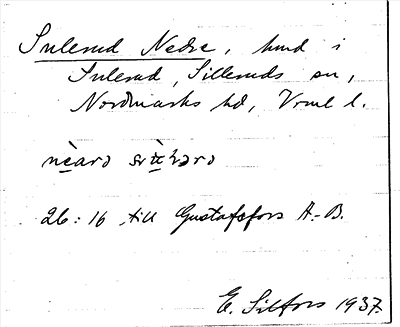 Sulerud Nedre, hmd i
Sulerud, Silleruds sn,
Nordmarks hd, Vrml l.
26:16 till Gustafsfors A.-B.
E. Silfors 1937.